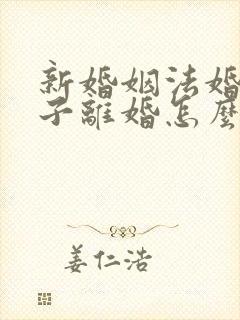 新婚姻法婚
子離婚怎麼
姜仁浩